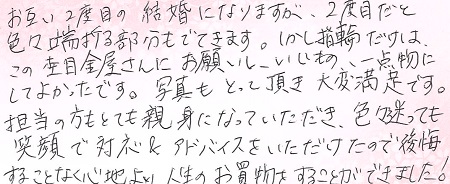 お互い2度目の結婚になりますが、2度目だと
色々端折る部分もでてきます。しかし指輪だけは、
この杢目金屋さんにお願いし、いいもの、一点物に
してよかったです。写真もとって頂き大変満足です。
担当の方もとても親身になっていただき、色々迷っても
笑顔で対応&アドバイスをいただけたので後悔
することなく心地よい人生のお買物をすることができました!